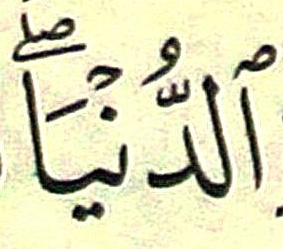 ٱلدُّنۡيَاۖ